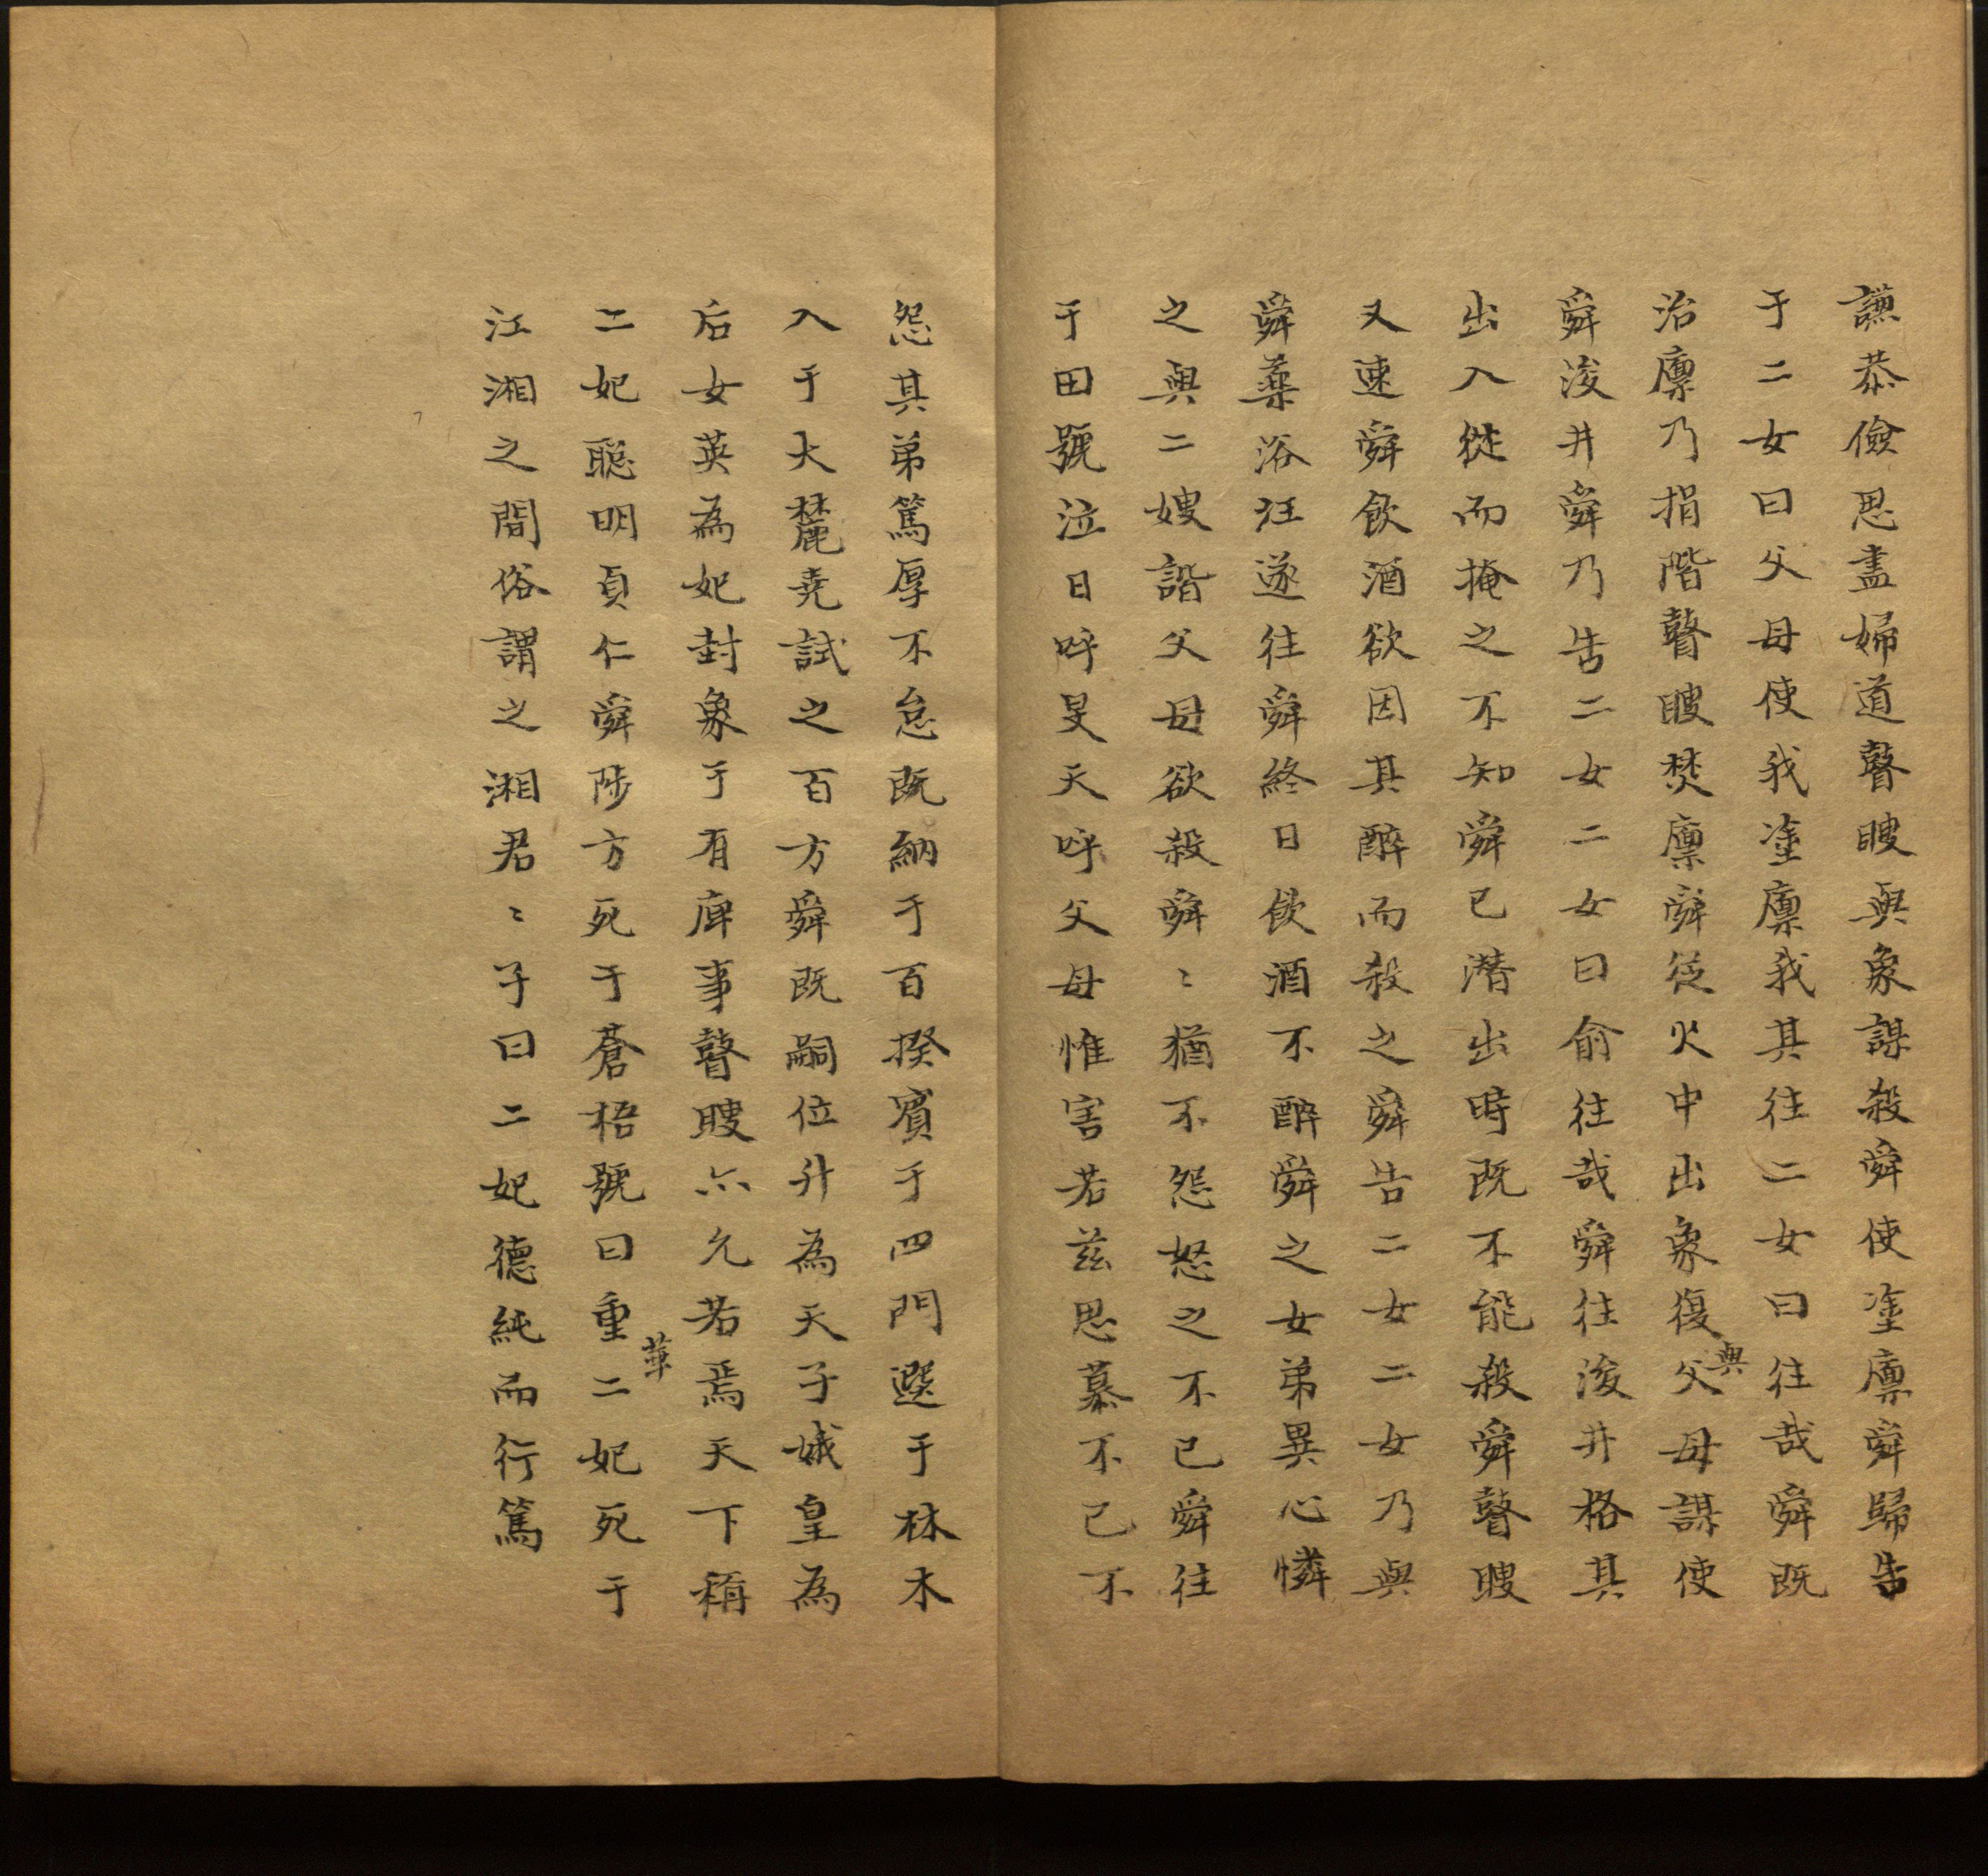 謙恭儉思盡婦道瞽瞍與象謀殺舜使塗廩舜歸告
于二女曰父母使我塗廩我其往二女曰往哉舜既
治廩乃捐階瞽瞍焚廩舜從火中出象復與父母謀使
舜浚井舜乃告二女二女曰俞往哉舜往浚井格其
出入從而掩之不知舜已潛出時既不能殺舜瞽瞍
又速舜飲酒欲因其醉而殺之舜告二女二女乃與
舜藥浴汪遂往舜終日飲酒不醉舜之女弟異心憐
之與二嫂諧父母欲殺舜〻猶不怨怒之不已舜往
于田號泣日呼旻天呼父母惟害若茲思慕不已不
怨其弟篤厚不怠既納于百揆賓于四門選于林木
入于大麓堯試之百方舜既嗣位升為天子娥皇為
后女英為妃封象于有庳事瞽瞍亦允若焉天下稱
二妃聰明貞仁舜陟方死于蒼梧號曰重華二妃死于
江湘之間俗謂之湘君〻子曰二妃德純而行篤